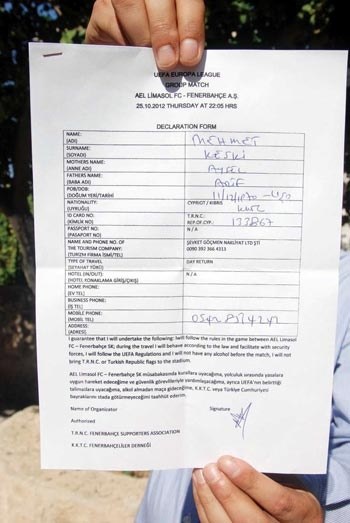 UEFA EUROPA LEAGUE
GROUP MATCH
AEL LIMASOL FC - FENERBAHÇE A.Ş.
25.10.2012 THURSDAY AT 22:05 HRS
DECLARATION FORM
NAME: MEHMET
(ADI)
SURNAME: KESKİ
(SOYADI)
MOTHERS NAME: AYSEL
(ANNE ADI)
FATHERS NAME: ARİF
(BABA ADI)
POB/DOB:
(DOĞUM YERİ/TARİHİ)
NATIONALITY: CYPRIOT / KIBRIS
(UYRUĞU)
ID CARD NO: T.R.N.C.
(KİMLİK NO) REP OF CY: 133867
PASSPORT NO: N / A
(PASAPORT NO)
NAME AND PHONE NO. OF ŞEVKET GÖÇMEN NAKLİYAT LTD ŞTİ
THE TOURISM COMPANY: 0090 392 366 4313
(TURIZM FIRMA ISMI/TEL)
TYPE OF TRAVEL DAY RETURN
(SEYAHAT TÜRÜ)
HOTEL (IN/OUT): N / A
(HOTEL KONAKLAMA GİRİŞ/ÇIKIŞ)
HOME PHONE:
(EV TEL)
BUSINESS PHONE:
(İŞ TEL)
MOBILE PHONE:
(MOBİL TEL)
ADDRESS:
(ADRES)
I guarantee that I will undertake the following: I will follow the rules in the game between AEL Limasol
FC – Fenerbahçe SK; during the travel I will behave according to the law and facilitate with security
forces, I will follow the UEFA Regulations and I will not have any alcohol before the match, I will not
bring T.R.N.C. or Turkish Republic flags to the stadium.
AEL Limasol FC – Fenerbahçe SK müsabakasında kurallara uyacağıma, yolculuk sırasında yasalara
uygun hareket edeceğime ve güvenlik görevlileriyle yardımlaşacağıma, ayrıca UEFA'nın belirttiği
talimatlara uyacağıma, alkol almadan maça gideceğime, K.K.T.C. veya Türkiye Cumhuriyeti
bayraklarını stada götürmeyeceğimi taahhüt ederim.
Name of Organizator Signature
Authorised
T.R.N.C. FENERBAHÇE SUPPORTERS ASSOCIATION
K.K.T.C. FENERBAHÇELİLER DERNEĞİ